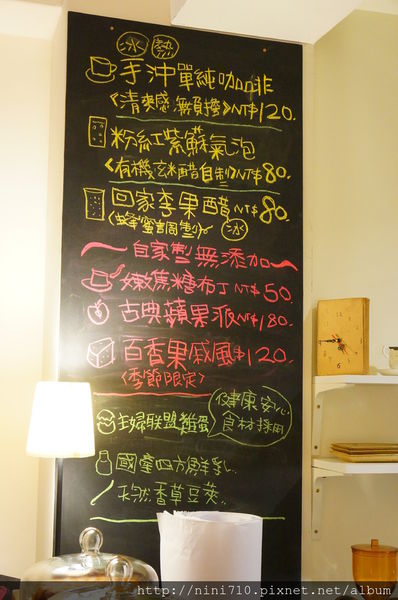 冰 熱
手沖單純咖啡
《清爽感.無負擔》NT$120.
粉紅紫蘇氣泡
《有機玄米醋自制》NT$80.
回家李果醋NT$80.
冰
自家製無添加
嫩焦糖布丁NT$50
古典蘋果派NT$180.
百香果戚風$120.
〈季節限定〉
主婦聯盟雞蛋
健康安心
食材採用
國產四方鮮乳..
天然香草豆莢..
http://nini710.pixnet.net/album